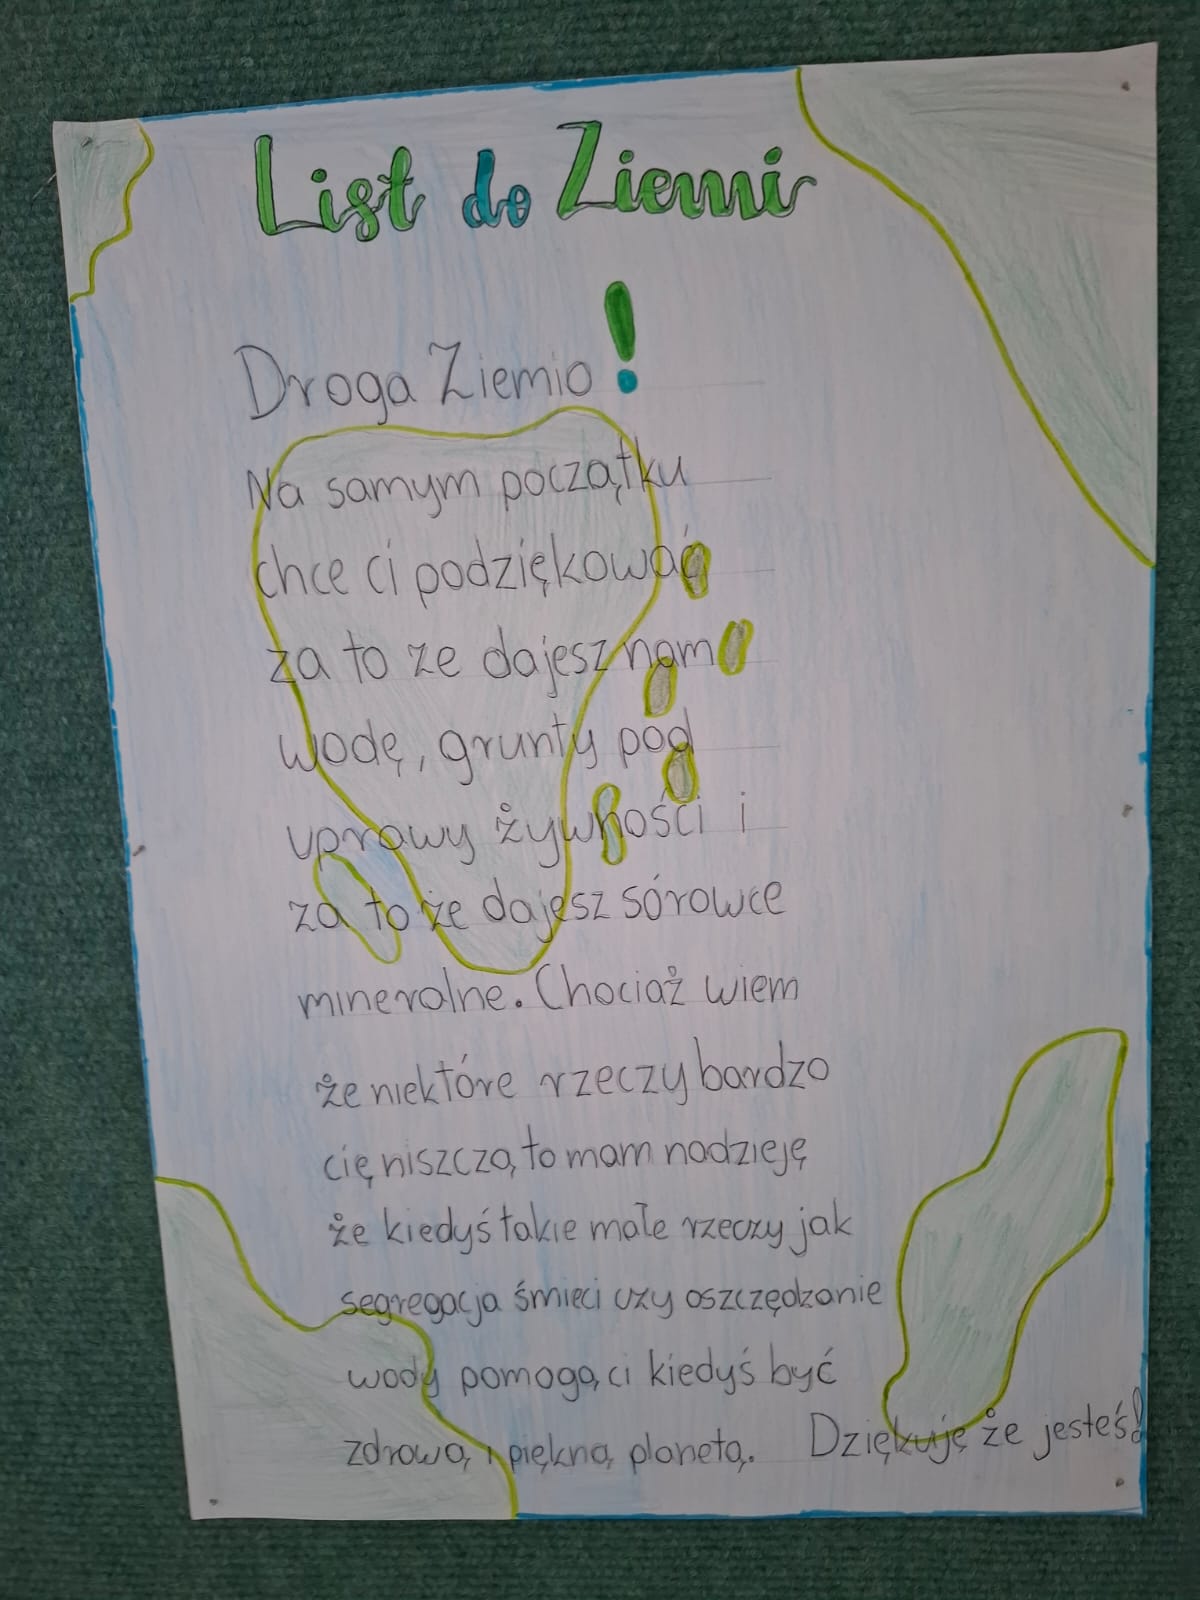 List do Ziemi
Droga Ziemio!
Na samym początku
chce ci podziękować
za to ze dajesz nam
wodę, grunty pod
uprawy żywności i
za to że dajesz sórowce
mineralne. Chociaż wiem
że niektóre rzeczy bardzo
cię niszczą, to mam nadzieję
że kiedyś takie małe rzeczy jak
segregacja śmieci czy oszczędzanie
wody pomogą ci kiedyś być
zdrową i piękną planetą. Dziękuję że jesteś!